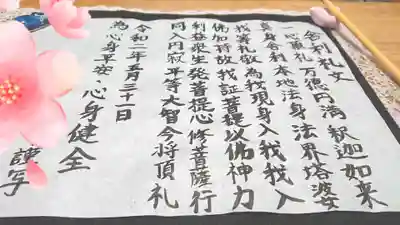 舎利礼文
一心頂礼万徳円満釈迦如来
真身舎利本地法身法界塔婆
我等礼敬為我現身入我我入
佛加持故我証菩提以佛神力
利益衆生発菩提心修菩薩行
同入円寂平等大智今将頂礼
令和二年五月三十一日
為心身平安 心身健全
謹写